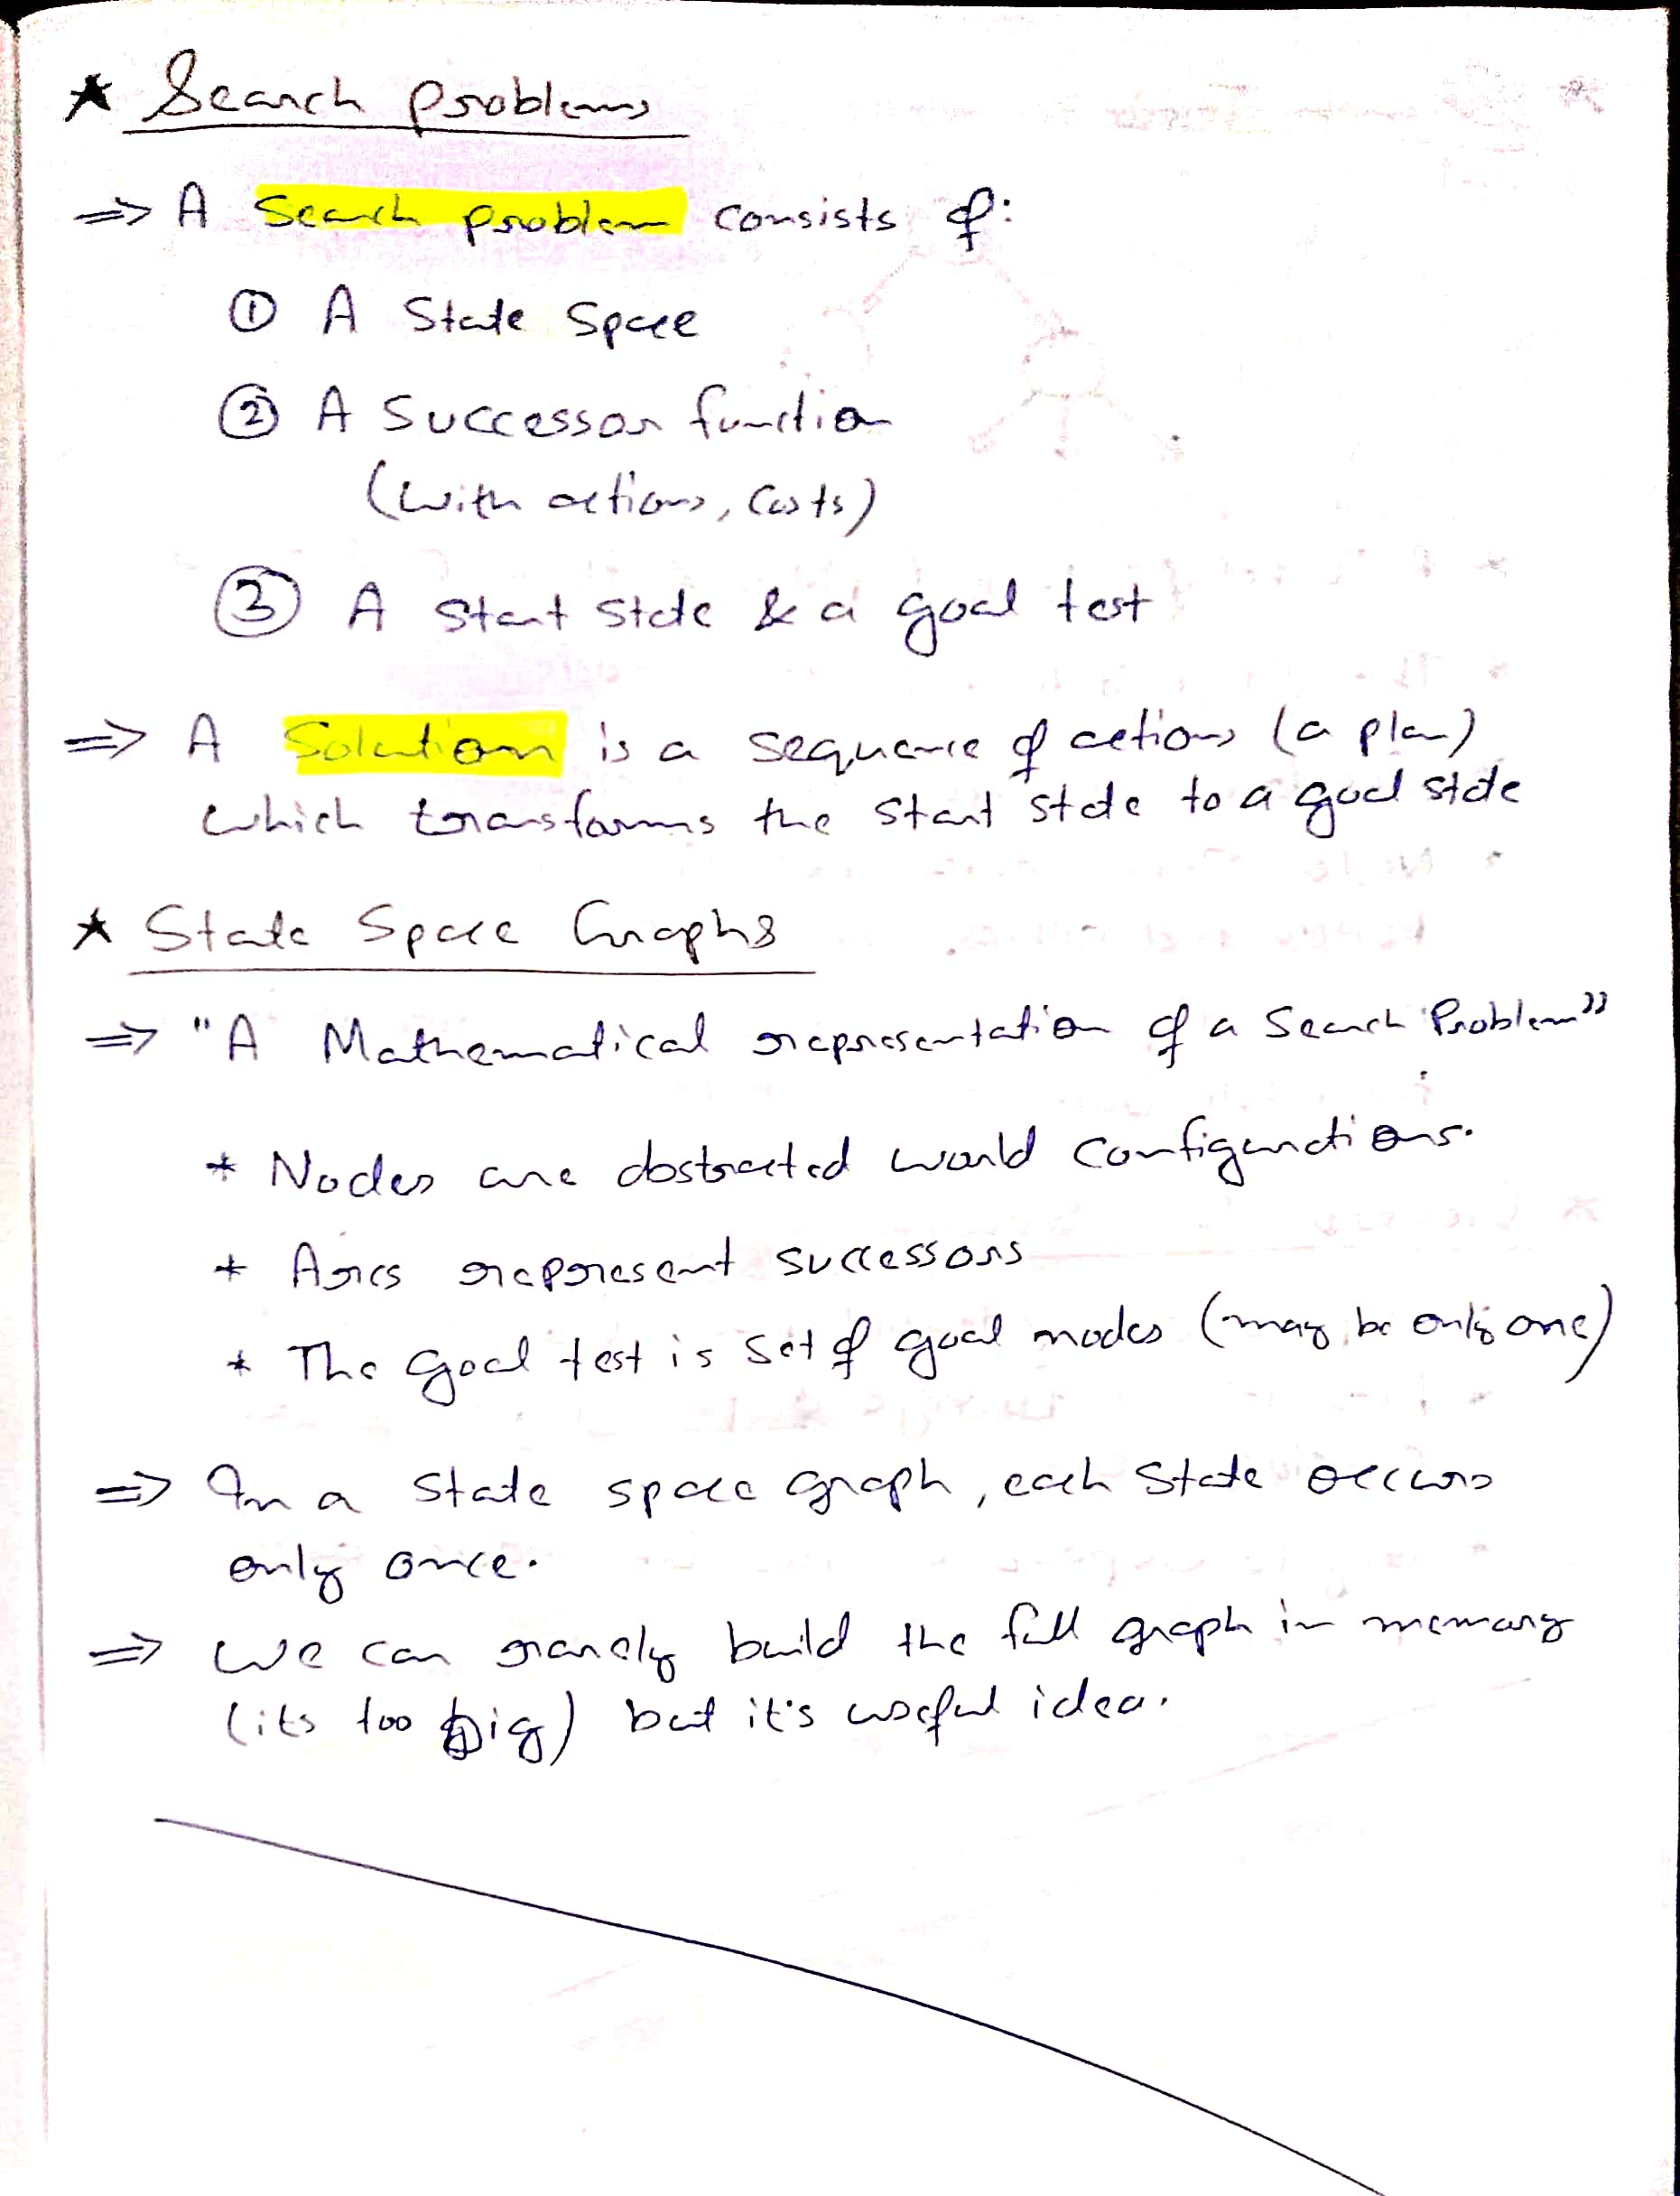 * Search problems
=> A Search problem consists of:
① A State Space
② A Successor function
(with actions, costs)
③ A Start State & a goal test
=> A Solution is a sequence of actions (a plan)
which transforms the start state to a goal state
* State Space Graphs
=> "A Mathematical representation of a Search Problem"
* Nodes are abstracted world configurations.
* Arcs represent successors
* The Goal test is set of goal nodes (may be only one)
=> In a State space graph, each State occurs
only once.
=> We can rarely build the full graph in memory
(its too big) but it's useful idea.